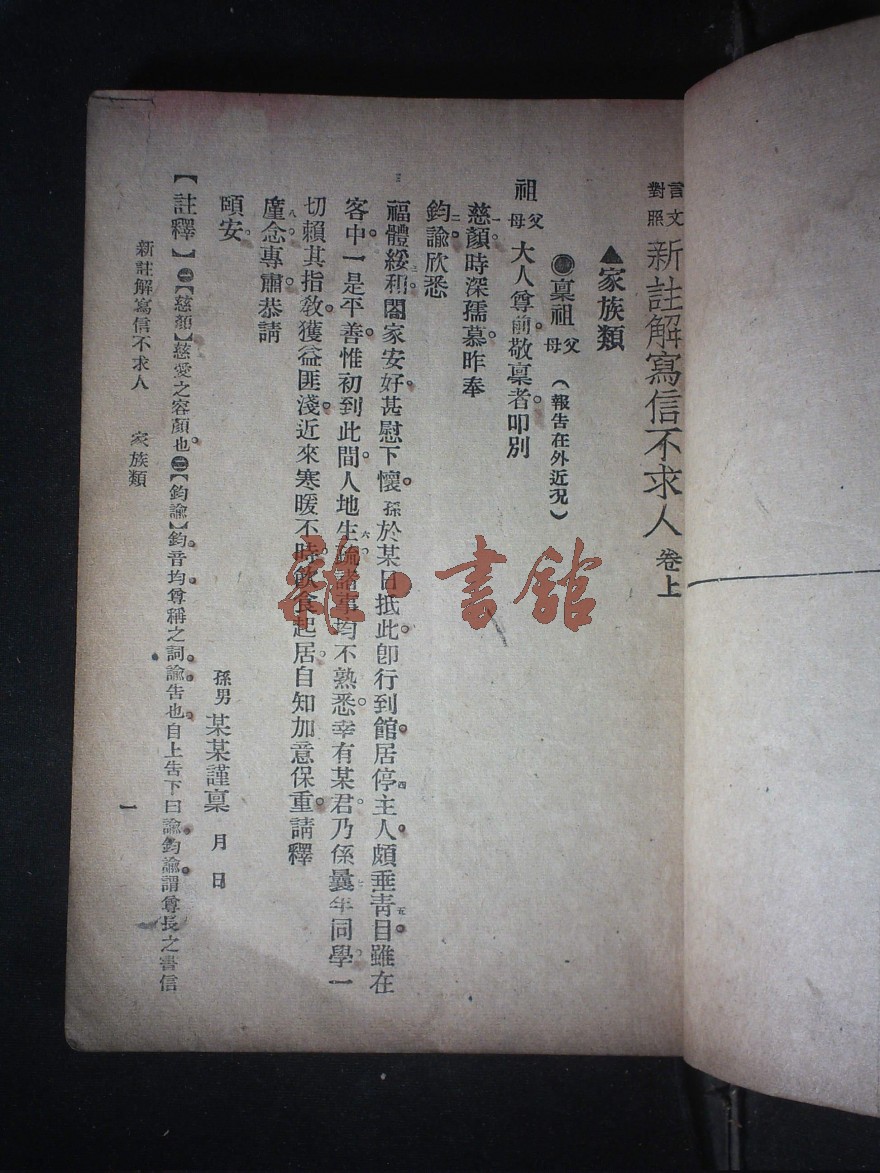 言文對照 新註解寫信不求人 卷上
▲家族類
●稟祖父母（報告在外近况）
祖父母大人尊前。敬稟者。叩別
慈顏。時深孺慕。昨奉
鈞諭。欣悉
福體綏和。闔家安好。甚慰下懷。孫於某日抵此。卽行到館。居停主人。頗垂靑目。雖在
客中。一是平善。惟初到此間。人地生疏。諸事均不熟悉。幸有某君。乃係曩年同學。一
切賴其指敎。獲益匪淺。近來寒暖不時。飮食起居。自知加意保重。請釋
廑念。專肅恭請
頤安。
孫男某某謹稟 月 日
【註釋】㊀【慈顏】慈愛之容顏也。㊁【鈞諭】鈞音均。尊稱之詞。諭。告也。自上告下曰諭。鈞諭。謂尊長之書信
新註解寫信不求人 家族類 一
雜·書館